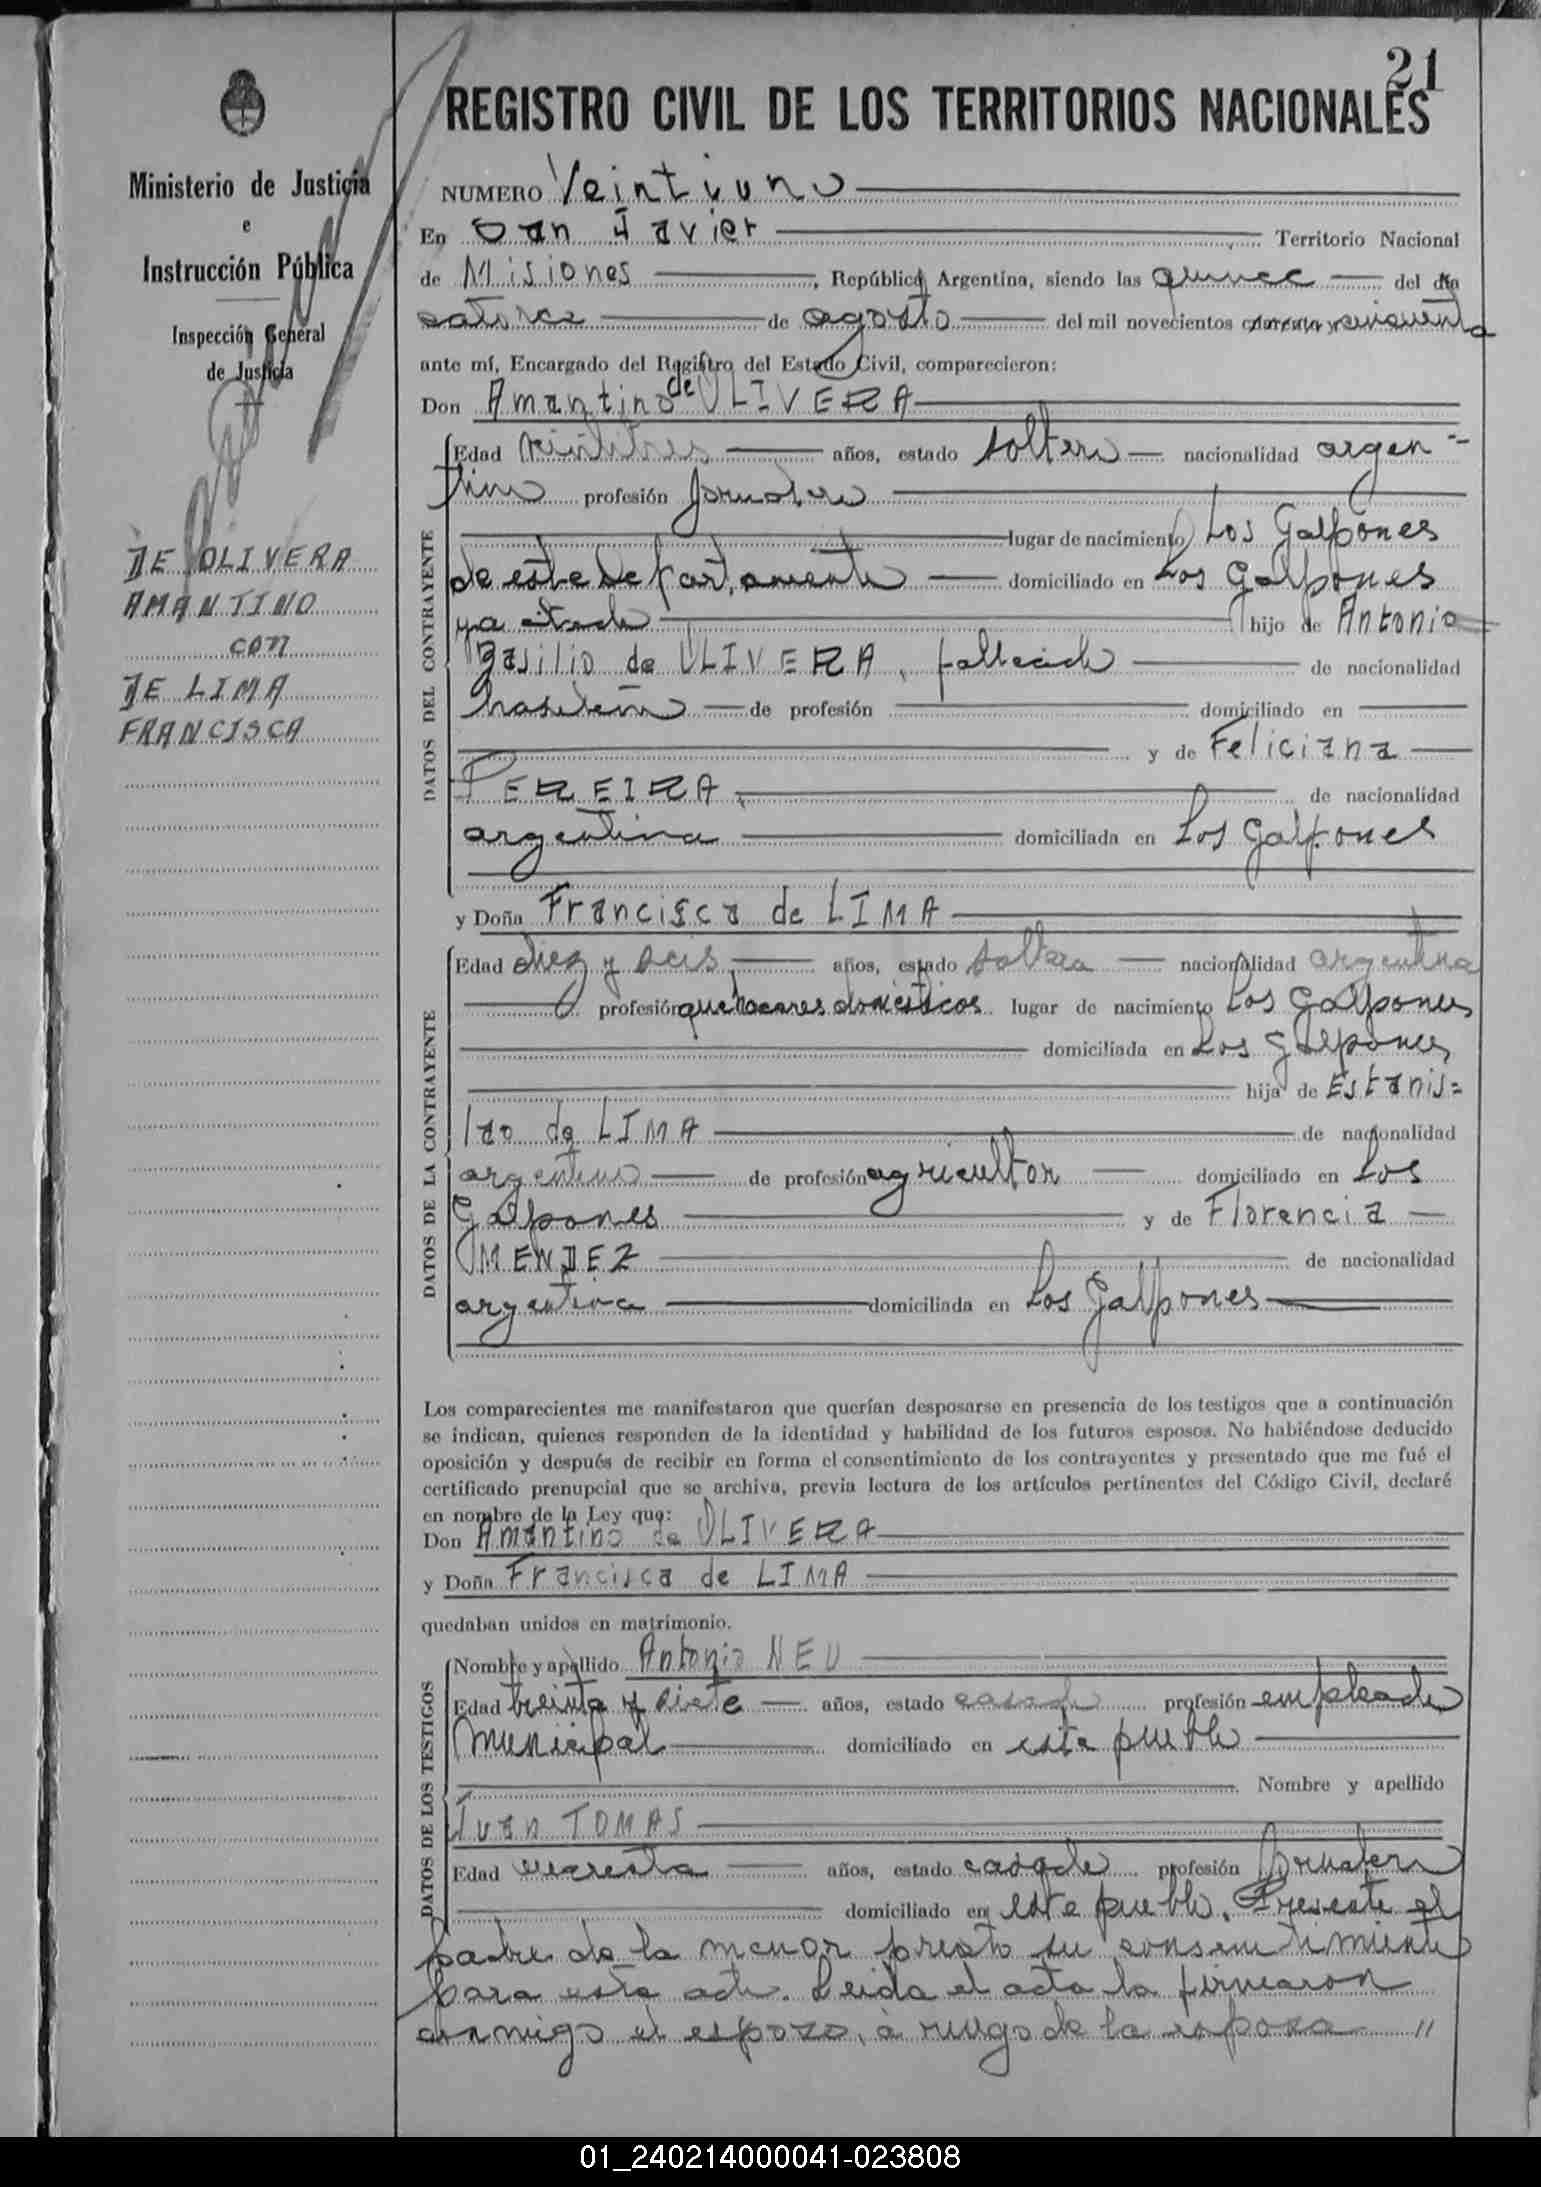 21
REGISTRO CIVIL DE LOS TERRITORIOS NACIONALES
Ministerio de Justicia
e
Instrucción Pública
Inspección General
de Justicia
DE OLIVERA
AMANTINO
con
DE LIMA
FRANCISCA
NUMERO Veintiuno
En San Javier Territorio Nacional
de Misiones, República Argentina, siendo las quince del día
catorce de agosto del mil novecientos cuarenta y cincuenta
ante mí, Encargado del Registro del Estado Civil, comparecieron:
Don Amantino de OLIVERA
DATOS DEL CONTRAYENTE
Edad veintitres años, estado soltero nacionalidad argen-
tino profesión jornalero
lugar de nacimiento Los Galpones
de este departamento domiciliado en Los Galpones
ya citado hijo de Antonio
Basilio de OLIVERA, fallecido de nacionalidad
brasileña de profesión domiciliado en
y de Feliciana
PEREIRA, de nacionalidad
argentina domiciliada en Los Galpones
y Doña Francisca de LIMA
DATOS DE LA CONTRAYENTE
Edad diez y seis años, estado soltera nacionalidad argentina
profesión quehaceres domésticos lugar de nacimiento Los Galpones
domiciliada en Los Galpones
hija de Estanis=
lao de LIMA de nacionalidad
argentino de profesión agricultor domiciliado en Los
Galpones y de Florencia
MENDEZ de nacionalidad
argentina domiciliada en Los Galpones
Los comparecientes me manifestaron que querían desposarse en presencia de los testigos que a continuación
se indican, quienes responden de la identidad y habilidad de los futuros esposos. No habiéndose deducido
oposición y después de recibir en forma el consentimiento de los contrayentes y presentado que me fué el
certificado prenupcial que se archiva, previa lectura de los artículos pertinentes del Código Civil, declaré
en nombre de la Ley que:
Don Amantino de OLIVERA
y Doña Francisca de LIMA
quedaban unidos en matrimonio.
DATOS DE LOS TESTIGOS
Nombre y apellido Antonio NEU
Edad treinta y siete años, estado casado profesión empleado
Municipal domiciliado en este pueblo
Nombre y apellido
Juan TOMAS
Edad cuarenta años, estado casado profesión jornalero
domiciliado en este pueblo. Presente el
padre de la menor prestó su consentimiento
para este acto. Leida el acta la firmaron
conmigo el esposo, a ruego de la esposa "
01_240214000041-023808